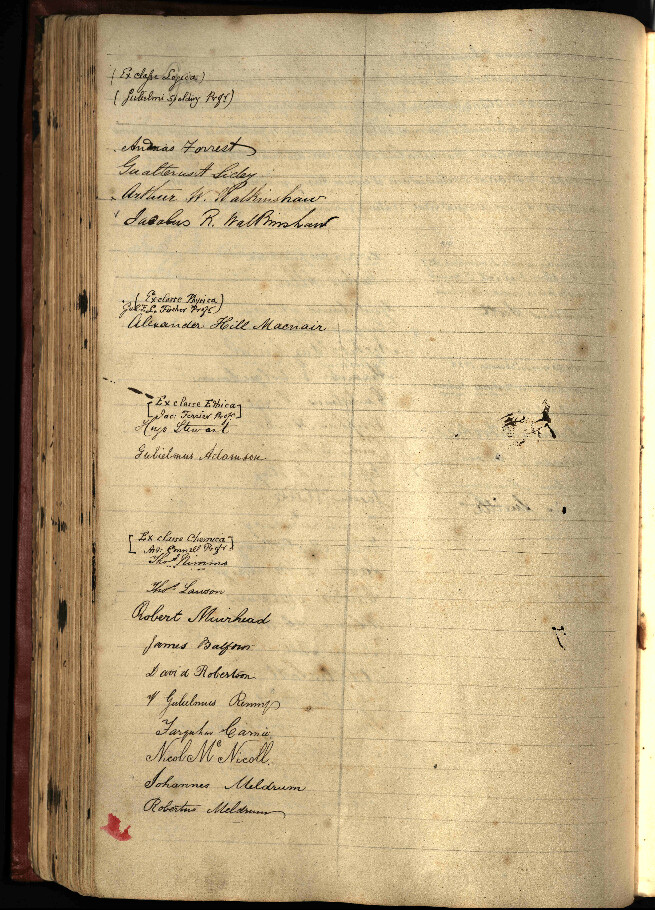 ( Ex classe Logica )
( Gulielmi Spalding Profr )
Andreas Forrest
Gualterus
Arthur W. Walkinshaw
Jacobus R. Walkinshaw
( Ex classe Physica )
Gul: F. L. Fischer Profr
Alexander Hill Macnair
[ Ex classe Ethica ]
Jac: Ferrier Profr
Hugo Stewart
Gulielmus Adamson
[ Ex classe Chemica ]
Art: Connell Profr
Thos
Thos Lawson
Robert Muirhead
James Balfour
David Robertson
Gulielmus
Farquhar
Nicol Mc Nicoll.
Johannes Meldrum
Robertus Meldrum